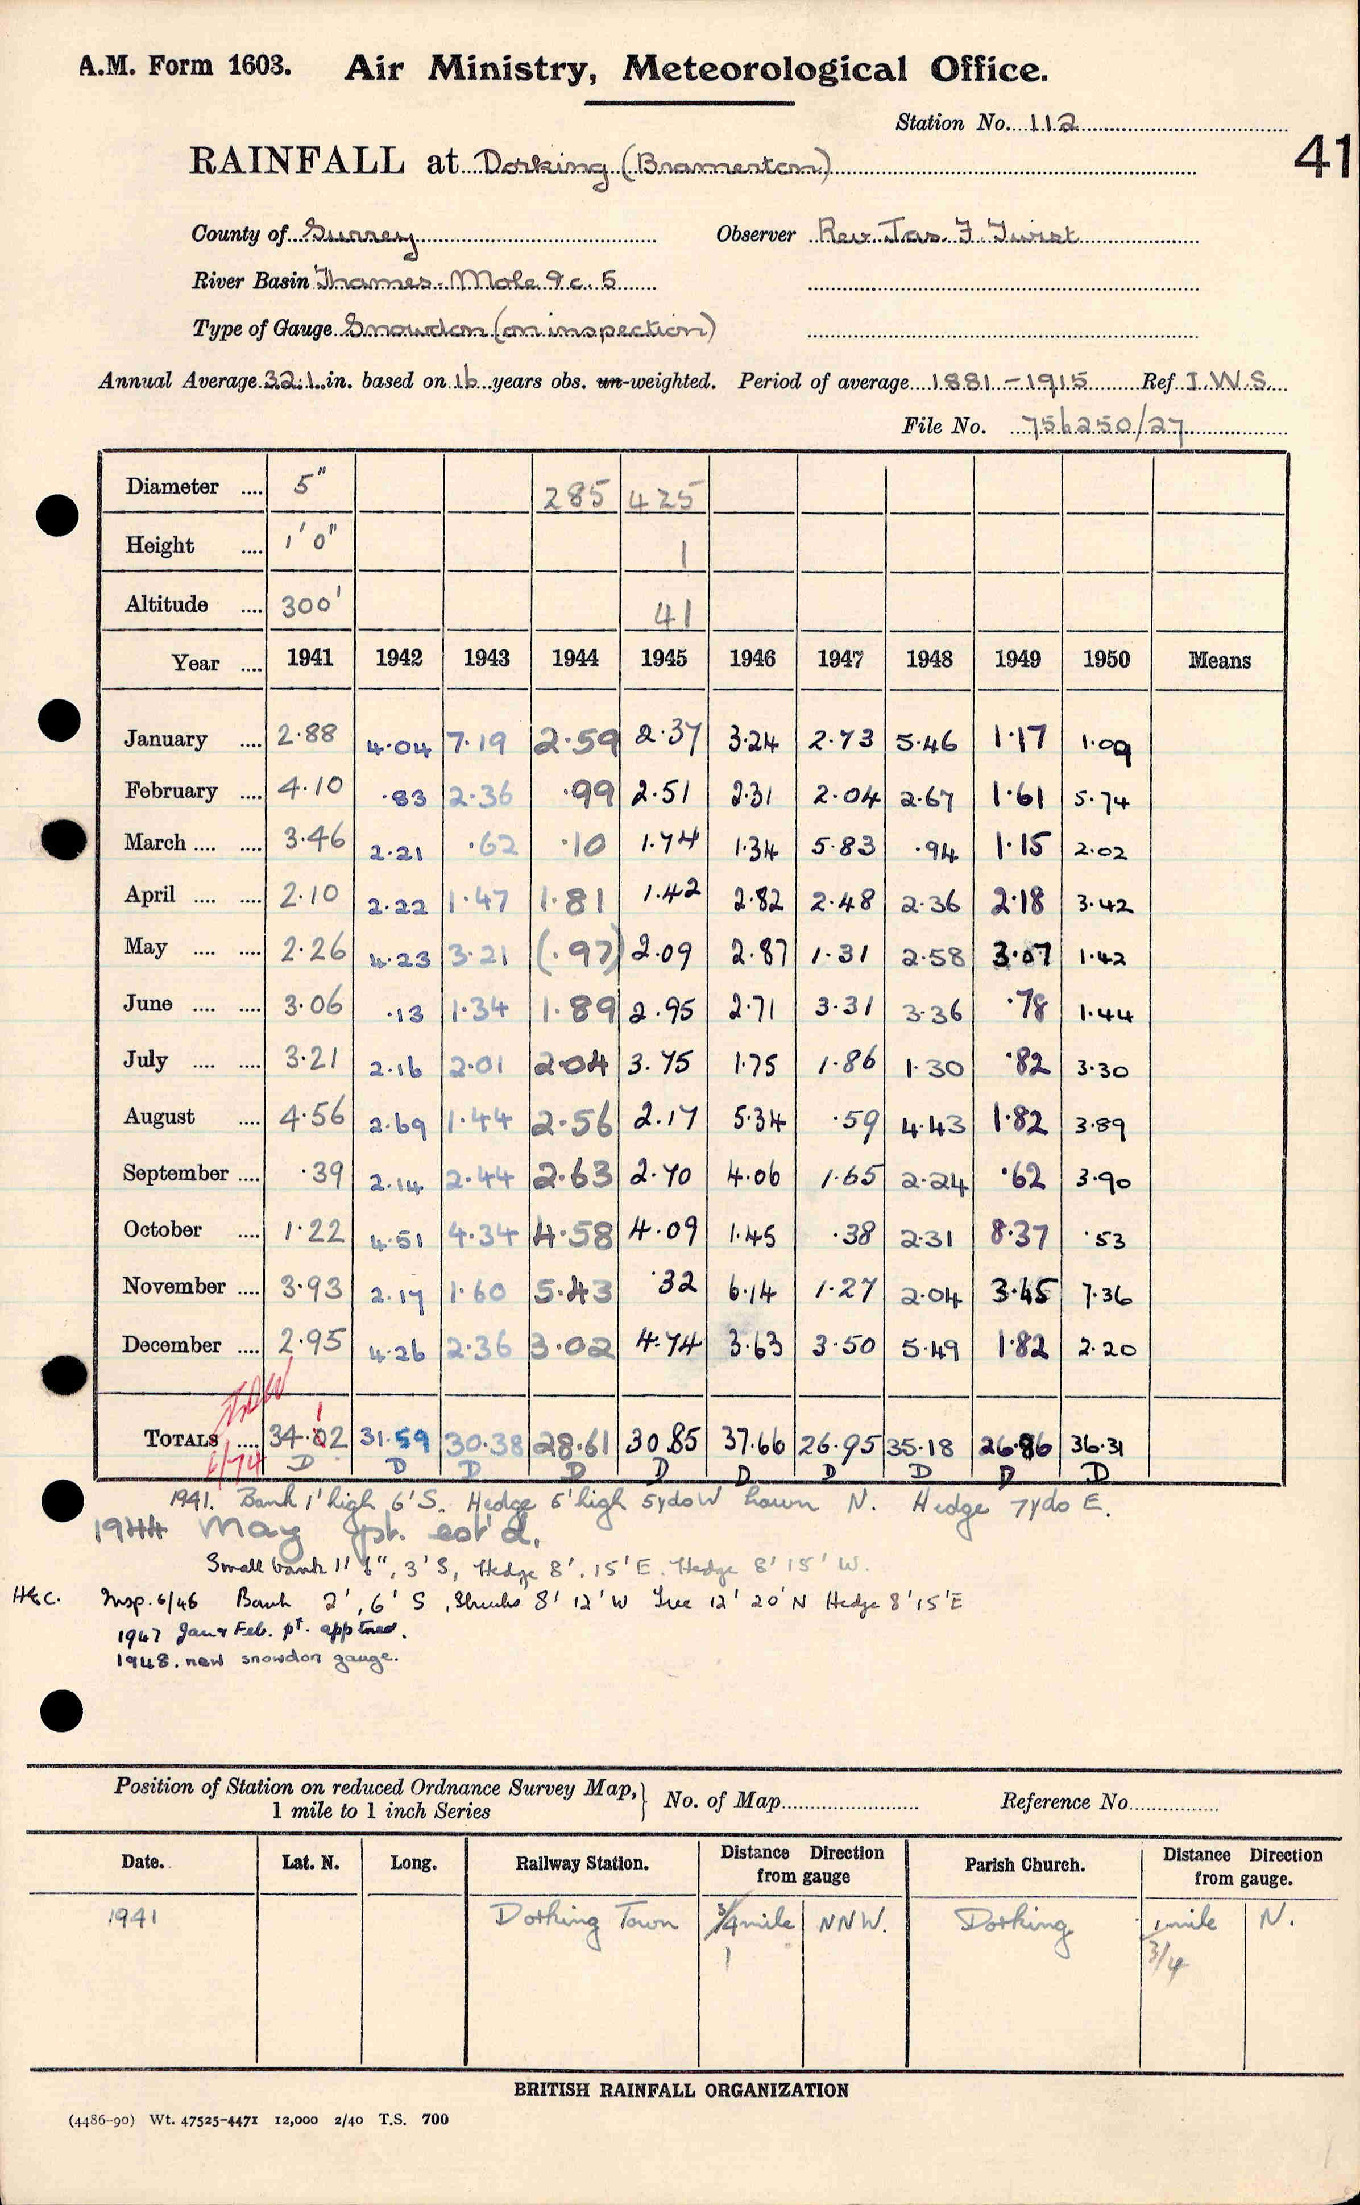 A.M. Form 1603. Air Ministry, Meteorological Office.
Station No. 112
41
RAINFALL at Dorking (Bramerton)
County of Surrey Observer Rev. Jas. F. Twist
River Basin Thames. Mole &c. 5
Type of Gauge Snowdon (on inspection)
Annual Average 32.1 in. based on 16 years obs. un-weighted. Period of average 1881-1915 Ref I.W.S.
File No. 756250/27
Diameter .... 5" 285 425
Height .... 1' 0" 1
Altitude .... 300' 41
Year .... 1941 1942 1943 1944 1945 1946 1947 1948 1949 1950 Means
January .... 2.88 4.04 7.19 2.59 2.37 3.24 2.73 5.46 1.17 1.09
February .... 4.10 .83 2.36 .99 2.51 2.31 2.04 2.67 1.61 5.74
March .... .... 3.46 2.21 .62 .10 1.74 1.34 5.83 .94 1.15 2.02
April .... .... 2.10 2.22 1.47 1.81 1.42 2.82 2.48 2.36 2.18 3.42
May .... .... 2.26 4.23 3.21 (.97) 2.09 2.87 1.31 2.58 3.07 1.42
June .... .... 3.06 .13 1.34 1.89 2.95 2.71 3.31 3.36 .78 1.44
July .... .... 3.21 2.16 2.01 2.04 3.75 1.75 1.86 1.30 .82 3.30
August .... 4.56 2.69 1.44 2.56 2.17 5.34 .59 4.43 1.82 3.89
September .... .39 2.14 2.44 2.63 2.70 4.06 1.65 2.24 .62 3.90
October .... 1.22 4.51 4.34 4.58 4.09 1.45 .38 2.31 8.37 .53
November .... 3.93 2.17 1.60 5.43 .32 6.14 1.27 2.04 3.45 7.36
December .... 2.95 4.26 2.36 3.02 4.74 3.63 3.50 5.49 1.82 2.20
1
TOTALS .... 34.02 31.59 30.38 28.61 30.85 37.66 26.95 35.18 26.86 36.31
6/74 D D D D D D D D D D
1941. Bank 1' high 6' S. Hedge 5' high 5 yds W Lawn N. Hedge 7 yds E.
1944 May pt. est'd.
Small bank 1' 6", 3' S, Hedge 8', 15' E. Hedge 8' 15' W.
H&C. Insp. 6/46 Bank 2', 6' S, Shrubs 8' 12' W Tree 12' 20' N Hedge 8' 15' E
1947 Jan & Feb. pt. apptned.
1948. new snowdon gauge.
Position of Station on reduced Ordnance Survey Map, } No. of Map Reference No.
1 mile to 1 inch Series
Date. Lat. N. Long. Railway Station. Distance Direction from gauge Parish Church. Distance Direction from gauge.
1941 Dorking Town 3/4 mile NNW. Dorking 1 mile N.
1 3/4
BRITISH RAINFALL ORGANIZATION
(4486-90) Wt. 47525-4471 12,000 2/40 T.S. 700